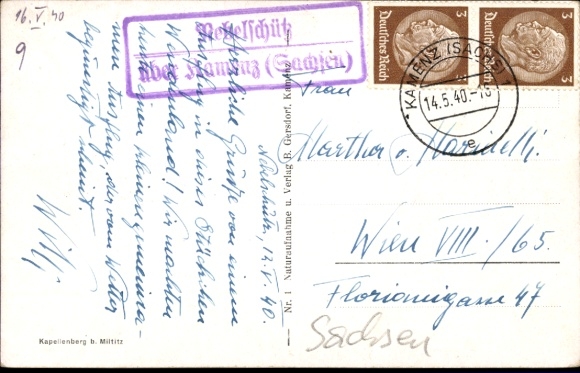 16.V.40
9
Nebelschütz
über Kamenz (Sachsen)
Deutsches Reich
3
3
Deutsches Reich
3
3
KAMENZ (SACHS) 1
14.5.40.-18
e
Nebelschütz, 12.V.40.
Herzliche Grüße von einem
Ausflug in dieses Stückchen
Wendenland! Wir machten
hier einen kleinen gemeinsa-
men Ausflug, der vom Wetter
begünstigt scheint.
Willy
Nr. 1 Naturaufnahme u. Verlag B. Gersdorf, Kamenz
Frau
Martha v.
Wien VIII./65.
Florianigasse 47
Sachsen
Kapellenberg b. Miltitz